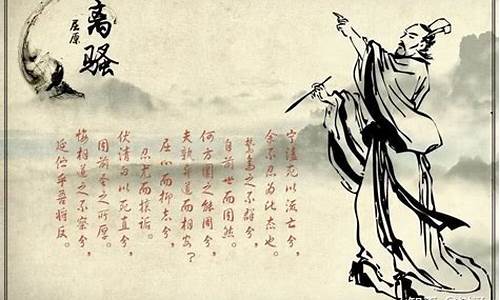 离骚
屈原
宁溘死以流亡兮,
余不忍为此态也。
鸷鸟之不群兮,
自前世而固然。
何方圜之能周兮,
夫孰异道而相安?
屈心而抑志兮,
忍尤而攘诟。
伏清白以死直兮,
固前圣之所厚。
悔相道之不察兮,
延伫乎吾将反。
知乎